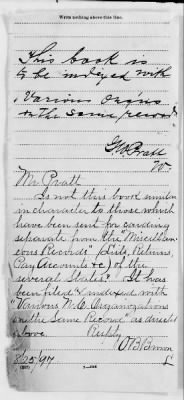 Write nothing above this line.
This book is
to be indexed with
Various Orgns
on the same record
Geo Pratt
Mr. Pratt
Is not this book similar
in character to those which
have been sent for carding
separate from the "Miscellan-
eous Records" (Lists, Returns,
Pay Accounts &c) of the
several States? It has
been filed & indexed with
"Various N.C. Organizations
on the Same Record" as directed
above.
Respy
O B Brown
8/25/97